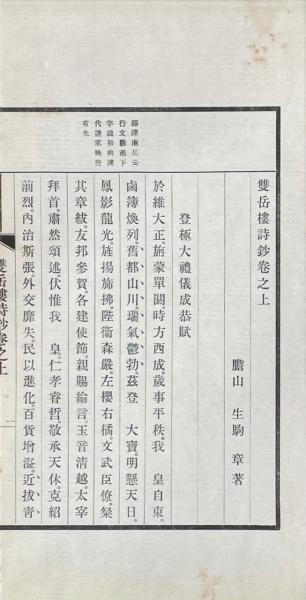 雙岳樓詩鈔卷之上
膽山 生駒 章著
登極大禮儀成恭賦
於維大正。旃蒙單閼。時方西成。歲事平秩。我 皇自東。
鹵簿煥列。舊都山川。瑞氣鬱勃。茲登 大寶。明懸天日。
鳳影龍光。旌揚旆拂。陛衞森嚴。左櫻右橘。文武臣僚。粲
其章紱。友邦參賀。各建使節。親賜綸言。玉音淸越。太宰
拜首。肅然頌述。伏惟我 皇。仁孝睿哲。敬承天休。克紹
前烈。內治斯張。外交靡失。民以進化。百貨增溢。近拔靑
南岳云
行文
字
代諸家
有光
雙岳樓詩鈔卷之上
一